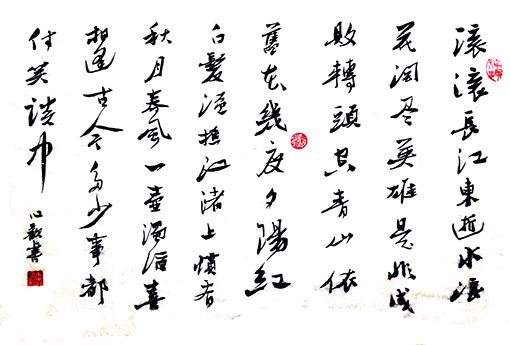 滾滾長江東逝水浪
花淘尽英雄是非成
敗轉頭空青山依
舊在幾度夕陽紅
白髮漁樵江渚上慣看
秋月春風一壺濁酒喜
相逢古今多少事都
付笑談中
書